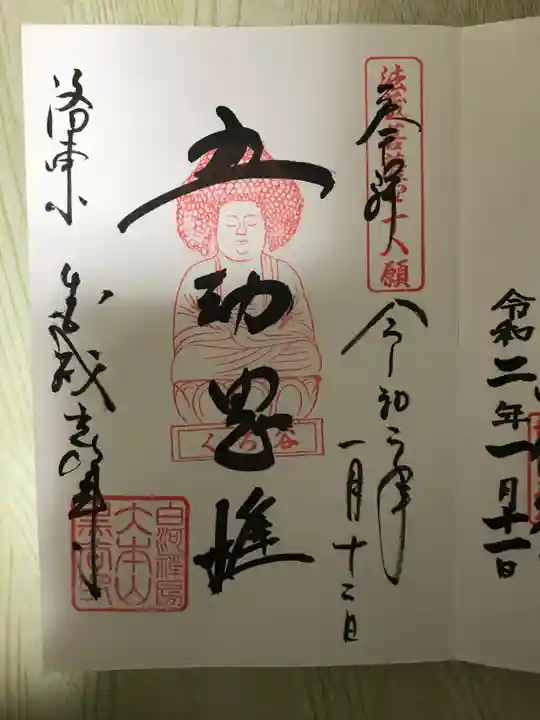 令和二年一月十一日
奉拝
令和二年
一月十二日
五劫思惟
くろ谷
洛東
金戒光明寺
白河禅房
大本山